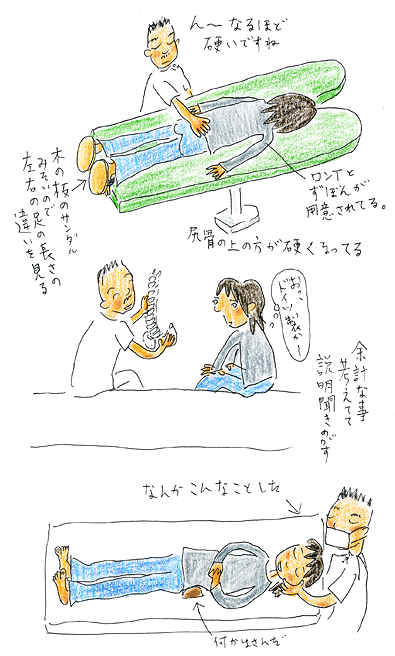 ん〜なるほど
硬いですね
ロンTと
ずぼんが
用意されてる。
木の板のサンダル
みたいので
左右の足の長さの
違いを見る
尻骨の上の方が硬くなってる
おっ、
ドイツ製かー
余計な事
考えてて
説明聞きのがす
なんかこんなことした
何かはさんだ